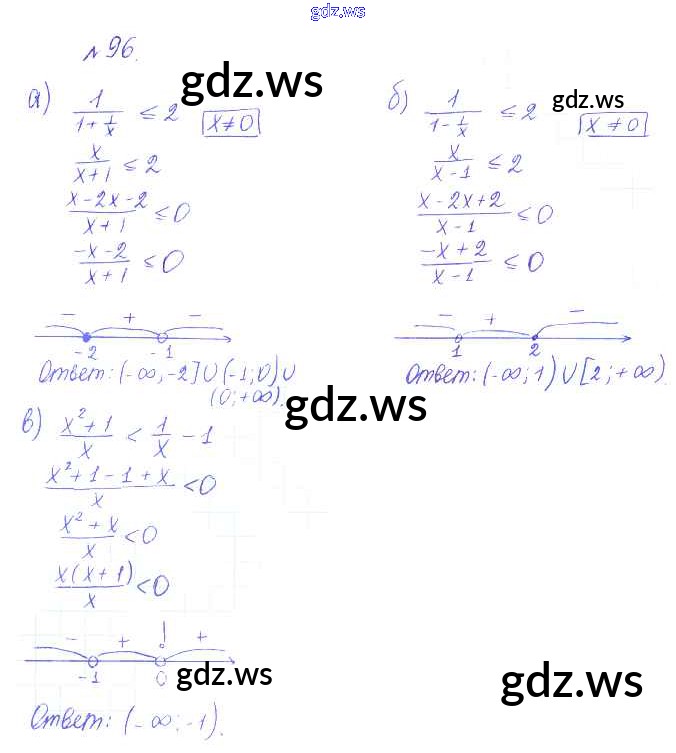 gdz.ws
№96.
gdz.ws
а) 1/(1+1/x) ≤ 2 x≠0
x/(x+1) ≤ 2
(x-2x-2)/(x+1) ≤ 0
(-x-2)/(x+1) ≤ 0
- + -
-2 -1
Ответ: (-∞;-2]∪(-1;0)∪
(0;+∞).
б) 1/(1-1/x) ≤ 2 x≠0
gdz.ws
x/(x-1) ≤ 2
(x-2x+2)/(x-1) ≤ 0
(-x+2)/(x-1) ≤ 0
- + -
1 2
Ответ: (-∞;1)∪[2;+∞).
gdz.ws
в) (x²+1)/x < 1/x - 1
(x²+1-1+x)/x < 0
(x²+x)/x < 0
x(x+1)/x < 0
- + ! +
-1 0
gdz.ws
gdz.ws
Ответ: (-∞;-1).